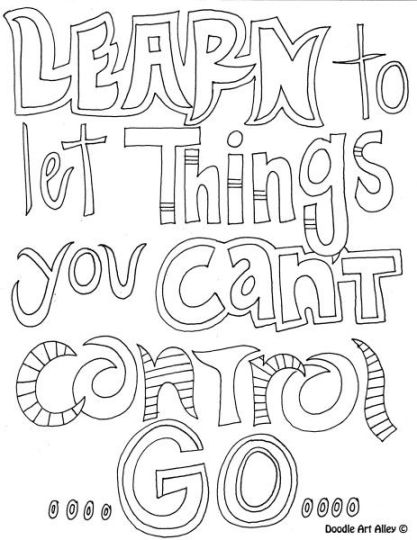 LEARN to
let Things
you Can't
control
....GO....
Doodle Art Alley ©